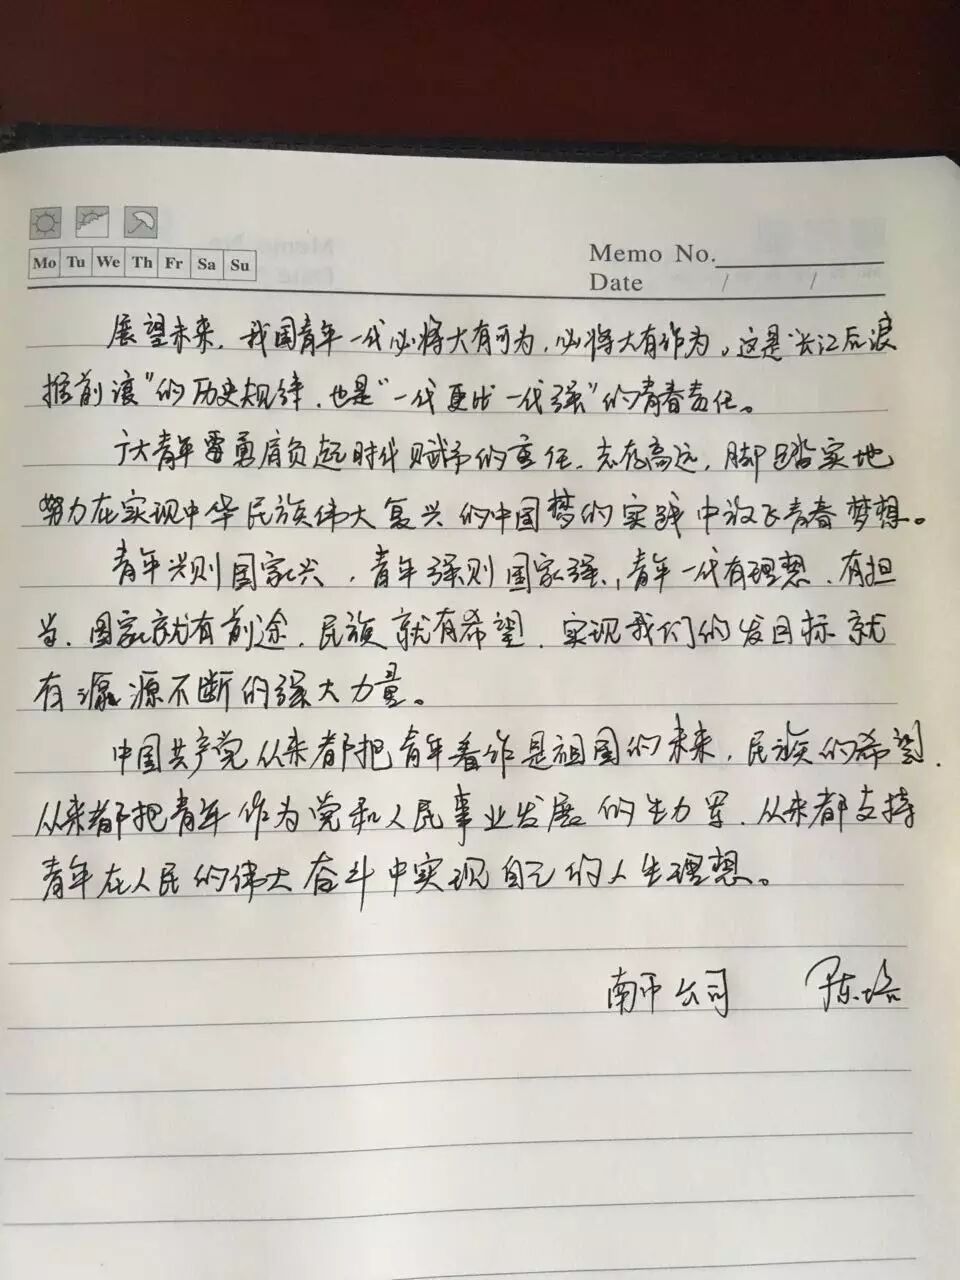 Memo No.
Mo Tu We Th Fr Sa Su
Date / /
展望未来，我国青年一代必将大有可为，必将大有作为。这是“长江后浪
推前浪”的历史规律，也是“一代更比一代强”的青春责任。
广大青年要勇肩负起时代赋予的重任，志存高远，脚踏实地
努力在实现中华民族伟大复兴的中国梦的实践中放飞青春梦想。
青年兴则国家兴，青年强则国家强，青年一代有理想、有担
当，国家就有前途，民族就有希望，实现我们的发目标就
有源源不断的强大力量。
中国共产党从来都把青年看作是祖国的未来，民族的希望，
从来都把青年作为党和人民事业发展的生力军，从来都支持
青年在人民的伟大奋斗中实现自己的人生理想。
公司 陈